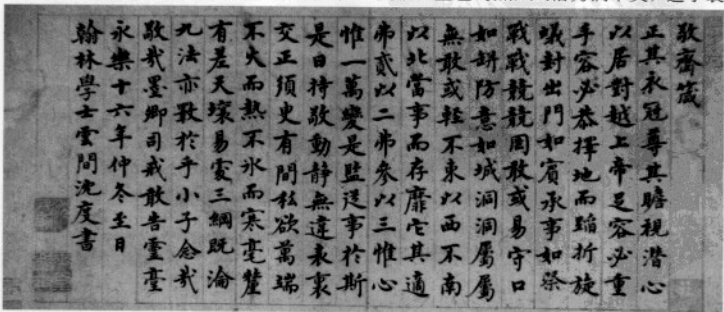 敬齋箴
正其衣冠尊其瞻視潛心
以居對越上帝足容必重
手容必恭擇地而蹈折旋
蟻封出門如賓承事如祭
戰戰兢兢罔敢或易守口
如缾防意如城洞洞屬屬
無敢或輕不東以西不南
以北當事而存靡它其適
弗貳以二弗參以三惟心
惟一萬變是監從事於斯
是曰持敬動靜無違表裏
交正須臾有間私欲萬端
不火而熱不冰而寒毫釐
有差天壤易處三綱既淪
九法亦斁於乎小子念哉
敬哉墨卿司戒敢告靈臺
永樂十六年仲冬至日
翰林學士雲間沈度書